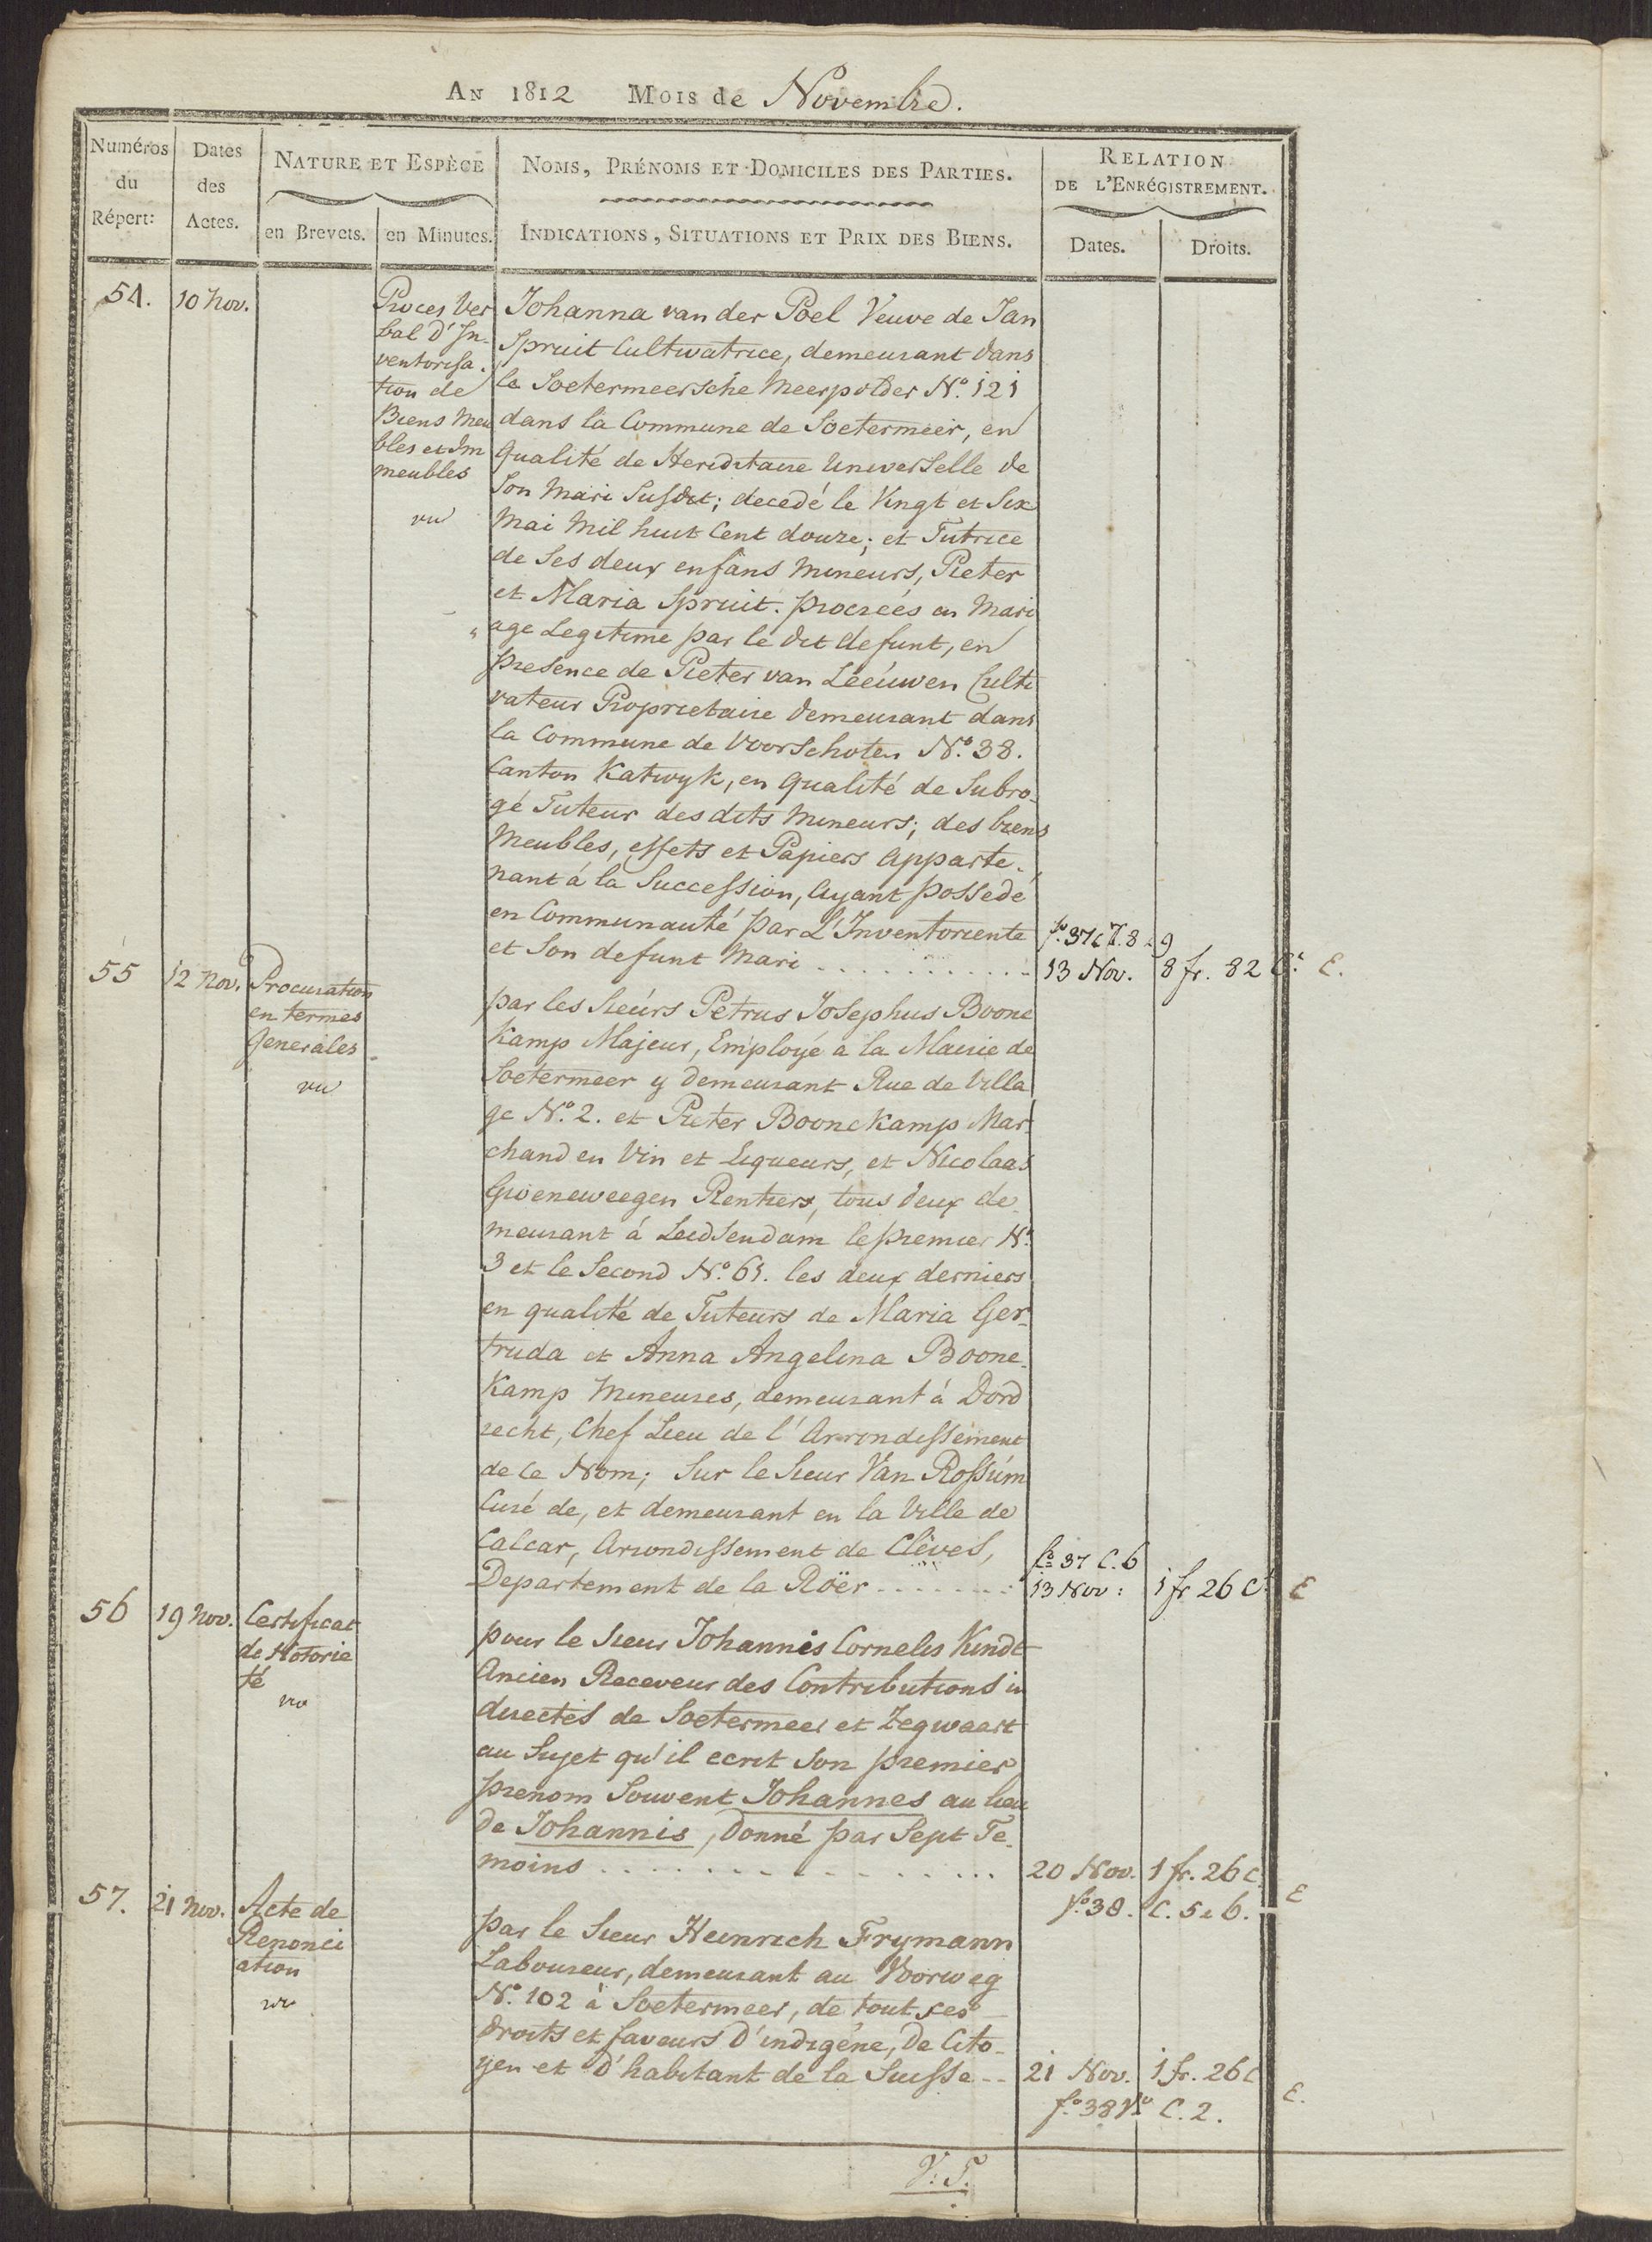 An 1812 Mois de Novembre.
Numéros du Répert:
Dates des Actes.
Nature et Espèce
en Brevets. en Minutes.
Noms, Prénoms et Domiciles des Parties.
Indications, Situations et Prix des Biens.
Relation de l'Enrégistrement.
Dates. Droits.
54. 10 Nov.
Proces Ver
bal d'In-
ventorisa-
tion de
Biens Meu
bles et Im
meubles
vu
Johanna van der Poel Veuve de Jan
Spruit Cultivatrice, demeurant dans
le Soetermeersche Meerpolder No. 121
dans la Commune de Soetermeer, en
qualité de Hereditaire Universelle de
Son Mari Susdit; decedé le Vingt et Six
Mai Mil huit Cent douze; et Tutrice
de Ses deux enfans Mineurs, Pieter
et Maria Spruit. procreés en Mari
age Legitime par le dit defunt, en
presence de Pieter van Leeuwen Culti
vateur Proprietaire demeurant dans
la Commune de Voorschoten No. 38.
Canton Katwyk, en qualité de Subro-
gé Tuteur des dits Mineurs; des biens
Meubles, effets et Papiers Apparte-
nant á la Succession, Ayant possedé
en Communauté par L'Inventoriente
et Son defunt Mari
fo. 37 C 7. 8 & 9
13 Nov. 8 fr. 82 Cs. E.
55 12 Nov.
Procuration
en termes
Generales
vu
par les Sieurs Petrus Josephus Boone
Kamp Majeur, Employé a la Mairie de
Soetermeer y demeurant Rue de Villa
ge No. 2. et Pieter Boonekamp Mar
chand en Vin et Liqueurs, et Nicolaas
Groeneweegen Rentiers, tous deux de-
meurant á Leidsendam le premier No.
3 et le Second No. 65. les deux derniers
en qualité de Tuteurs de Maria Ger-
truda et Anna Angelina Boone-
Kamp Mineures, demeurant á Dord
recht, Chef Lieu de l'Arrondissement
de ce Nom; Sur le Sieur Van Rossum
Curé de, et demeurant en la Ville de
Calcar, Arrondissement de Clèves,
Departement de la Roër
fo. 37 C. 6
13 Nov: 1 fr 26 Cs E
56 19 Nov.
Certificat
de Notorie
té
vu
pour le Sieur Johannis Cornelis Kindt
Ancien Receveur des Contributions in
directes de Soetermeer et Zegwaart
au Sujet qu'il ecrit Son premier
prenom Souvent Johannes au lieu
de Johannis, Donné par Sept Te-
moins
20 Nov. 1 fr. 26 c. E
fo. 38. C. 5 & 6.
57. 21 Nov.
Acte de
Renonci
ation
vu
par le Sieur Heinrich Frymann
Laboureur, demeurant au Voorweg
No. 102 à Soetermeer, de tout ses
droits et faveurs d'indigéne, De Cito-
yen et d'habitant de la Suisse
21 Nov. 1 fr. 26 C E.
fo. 38 Vo C. 2.
V. S.